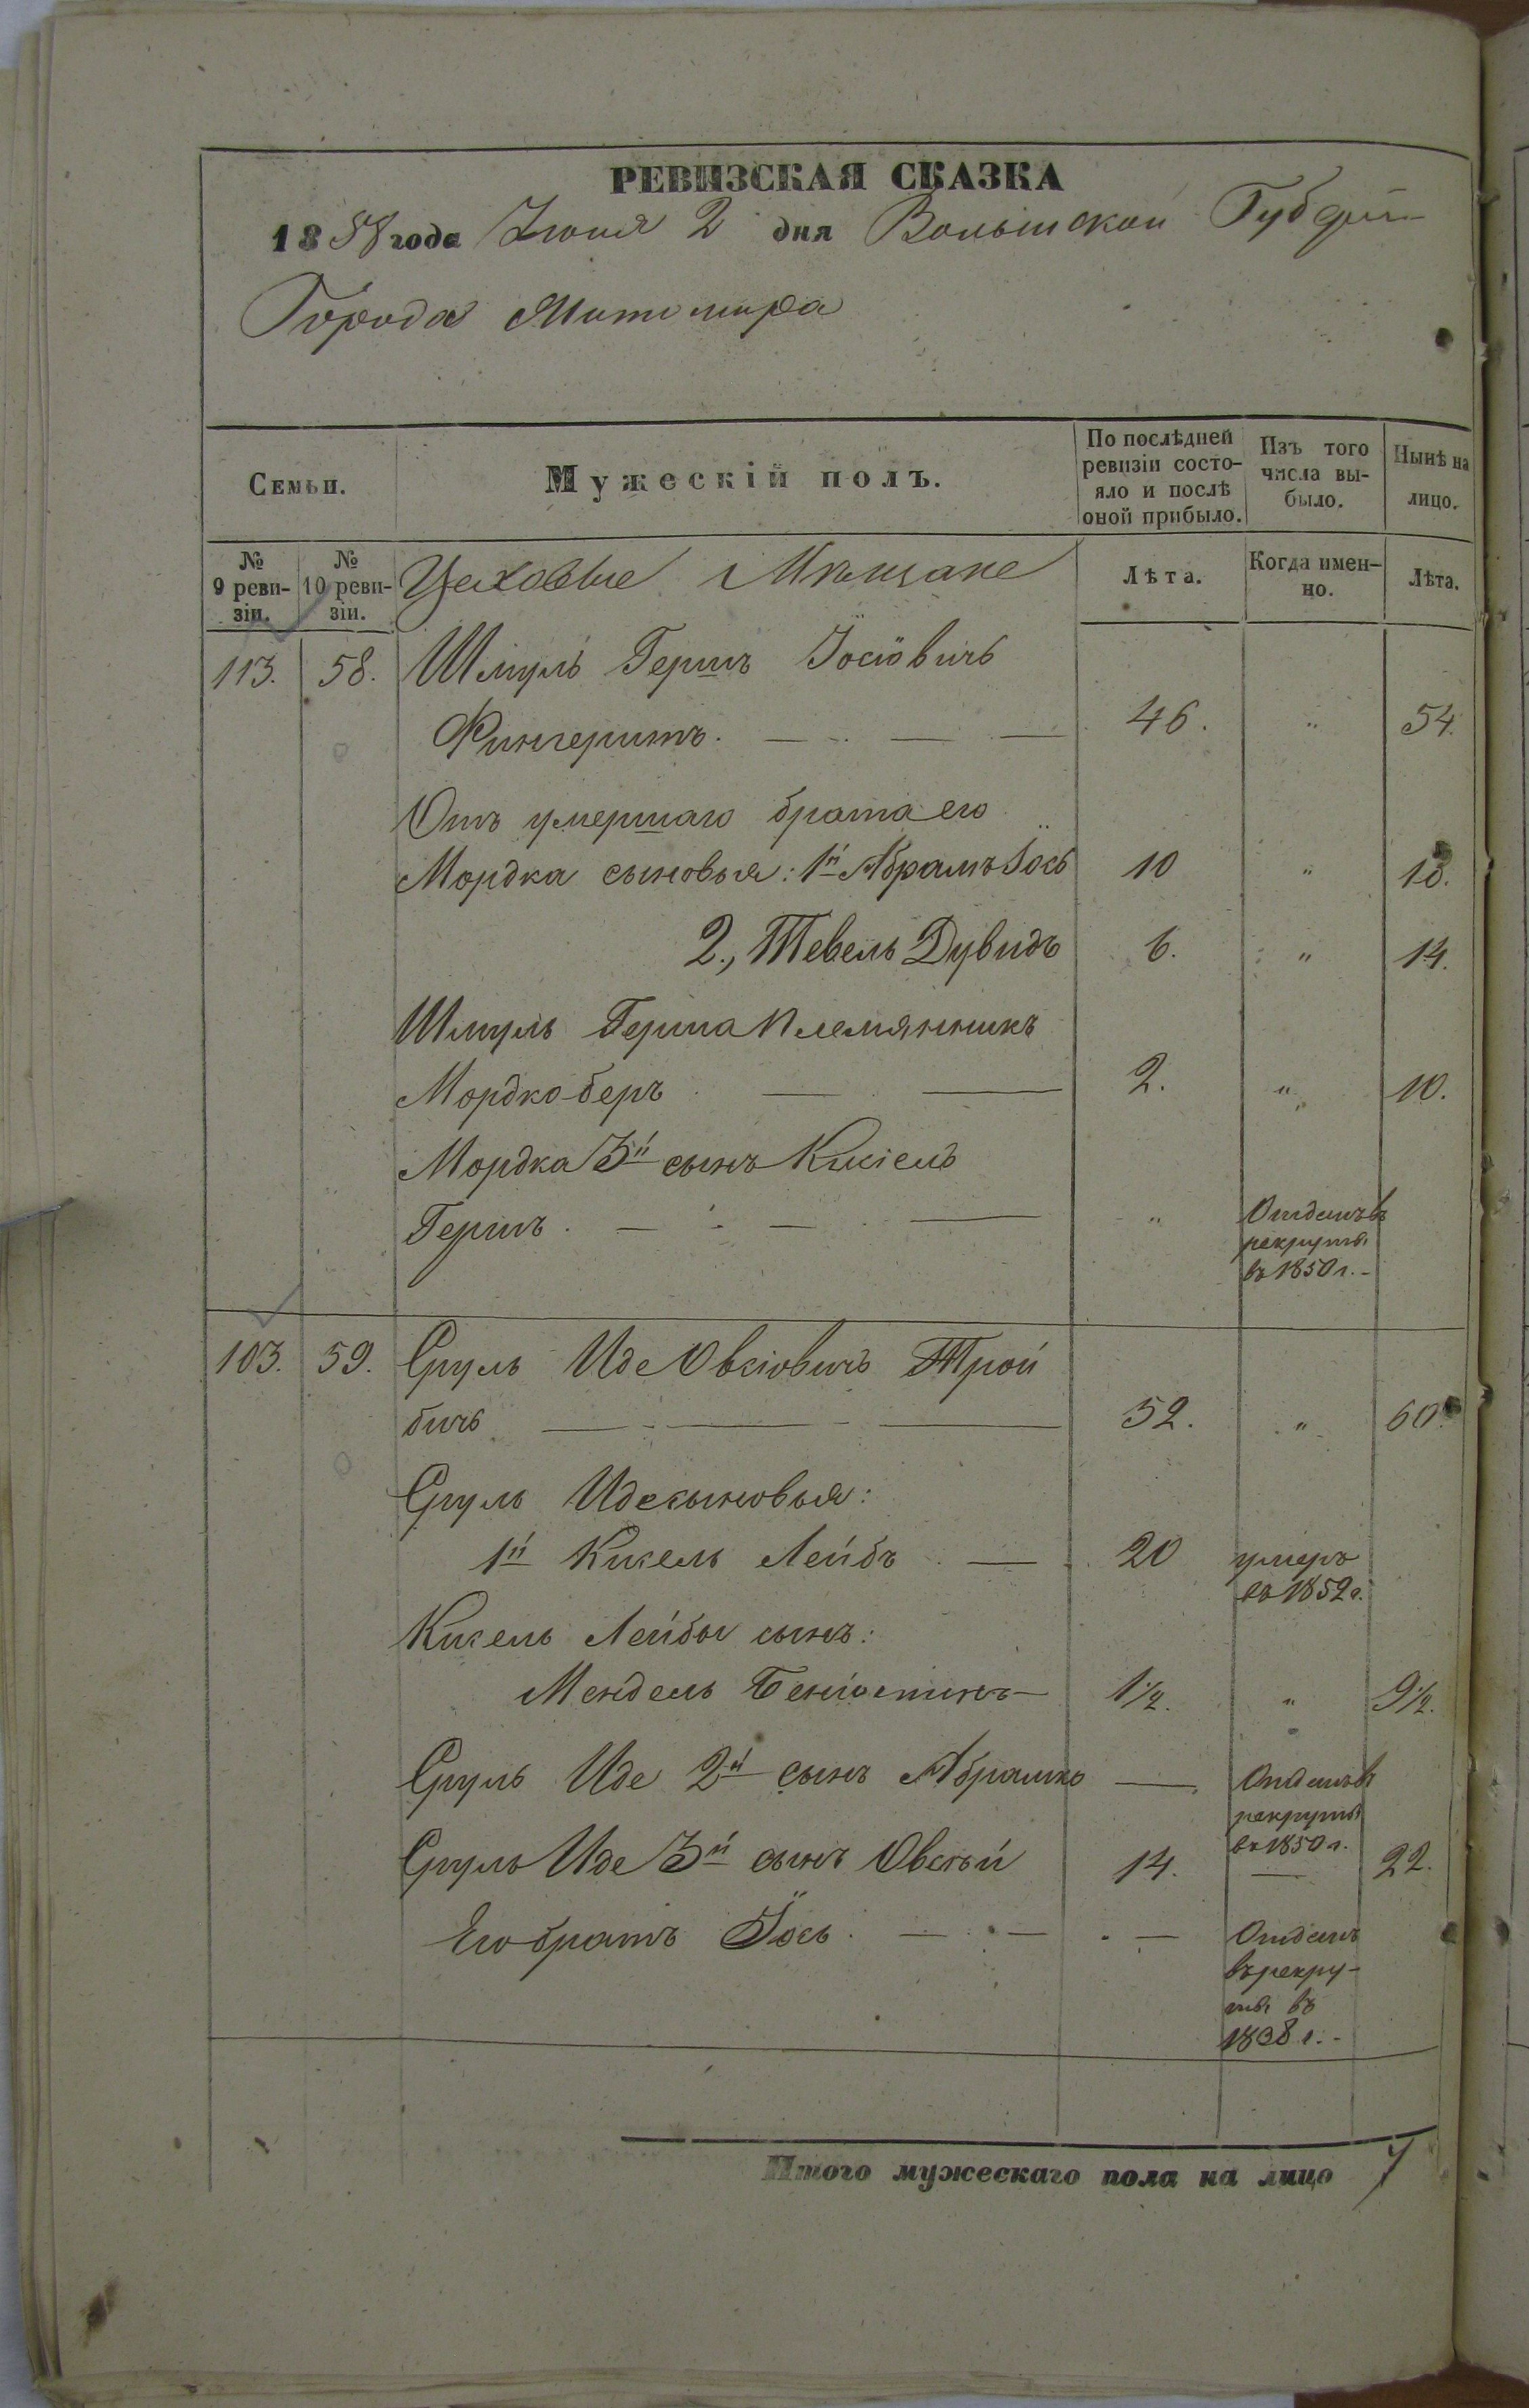 РЕВИЗСКАЯ СКАЗКА
1858 года Июня 2 дня Волынской Губерніи
Города Житомира
Семьи.
Мужескій полъ.
По послѣдней ревизіи состо-
яло и послѣ
оной прибыло.
Изъ того
числа вы-
было.
Нынѣ на
лицо.
№
9 реви-
зіи.
№
10 реви-
зіи.
Цеховые Мѣщане
Лѣта.
Когда имен-
но.
Лѣта.
113. 58. Шмуль Гершъ Іосіовичъ
Фингеритъ. 46. " 54.
Отъ умершаго брата его
Мордка сыновья: 1й Абрамъ Іось 10 " 18.
2., Тевель Дувидъ 6. " 14.
Шмуль Герша племянникъ
Мордко-беръ 2. " 10.
Мордка 3й сынъ Кисіель
Гершъ. " Отданъ въ
рекруты
въ 1850 г.-
103. 59. Сруль Иде Овсіовичъ Трой
бичъ 52. " 60.
Сруль Иде сыновья:
1й Кисель Лейбъ 20 умеръ
въ 1852 г.
Кисель Лейбы сынъ:
Мендель 1½. " 9½.
Сруль Иде 2й сынъ Абрамко — Отданъ въ
рекруты
въ 1850 г.
Сруль Иде 3й сынъ Овсѣй 14. — 22.
Его братъ Іось. — Отданъ
въ рекру-
ты въ
1838 г.-
Итого мужескаго пола на лицо 7